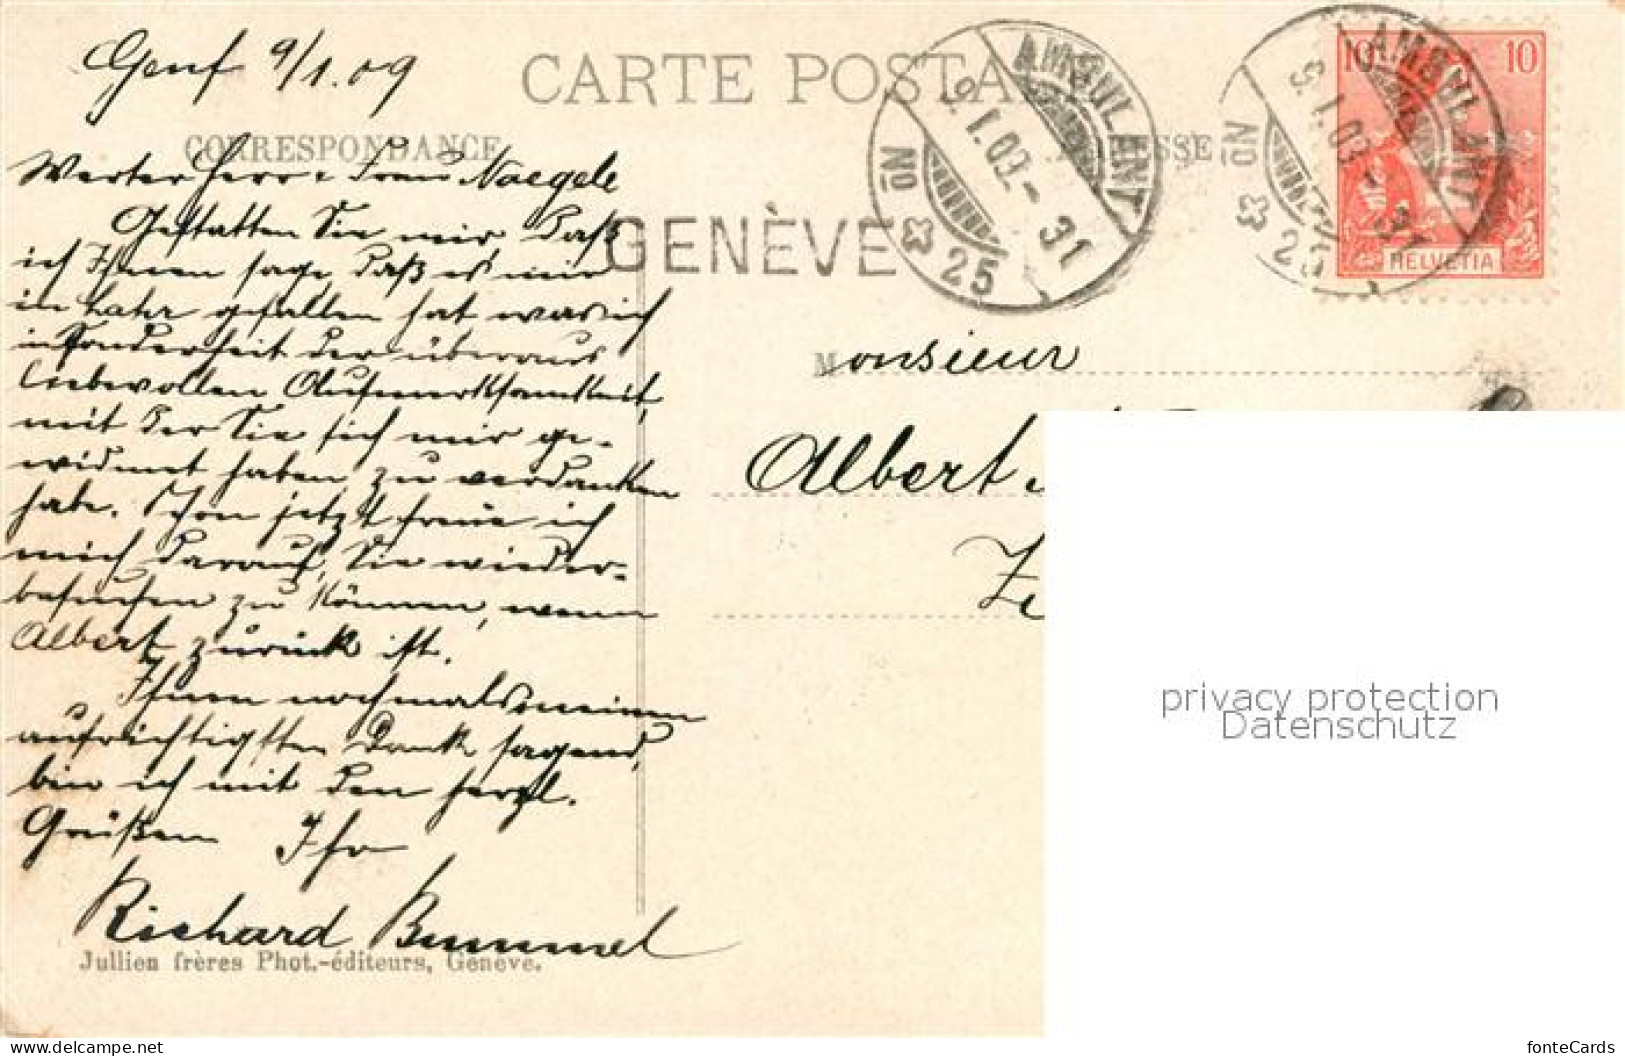 Genf 9/1.09
CARTE POSTA
CORRESPONDANCE
ESSE
Werter Herr u. Frau Naegele
Gestatten Sie mir, daß
ich Ihnen sage, daß es mir
in Lahr gefallen hat was ich
in Sonderheit der überaus
liebevollen Aufmerksamkeit,
mit der Sie sich mir ge-
widmet haben zu verdanken
habe. Schon jetzt freue ich
mich darauf, Sie wieder-
besuchen zu können, wenn
Albert zurück ist.
Ihnen nochmals meinen
aufrichtigsten Dank sagend,
bin ich mit den herzl.
Grüßen Ihr
Richard Bummel
Jullien frères Phot.-éditeurs, Genève.
GENÈVE
AMBULANT
9.I.09.-31
No 25
AMBULANT
9.I.09.-31
No 25
10 10
HELVETIA
Monsieur
Albert
privacy protection
Datenschutz
www.ansichtskarten-center.de
fonteCards